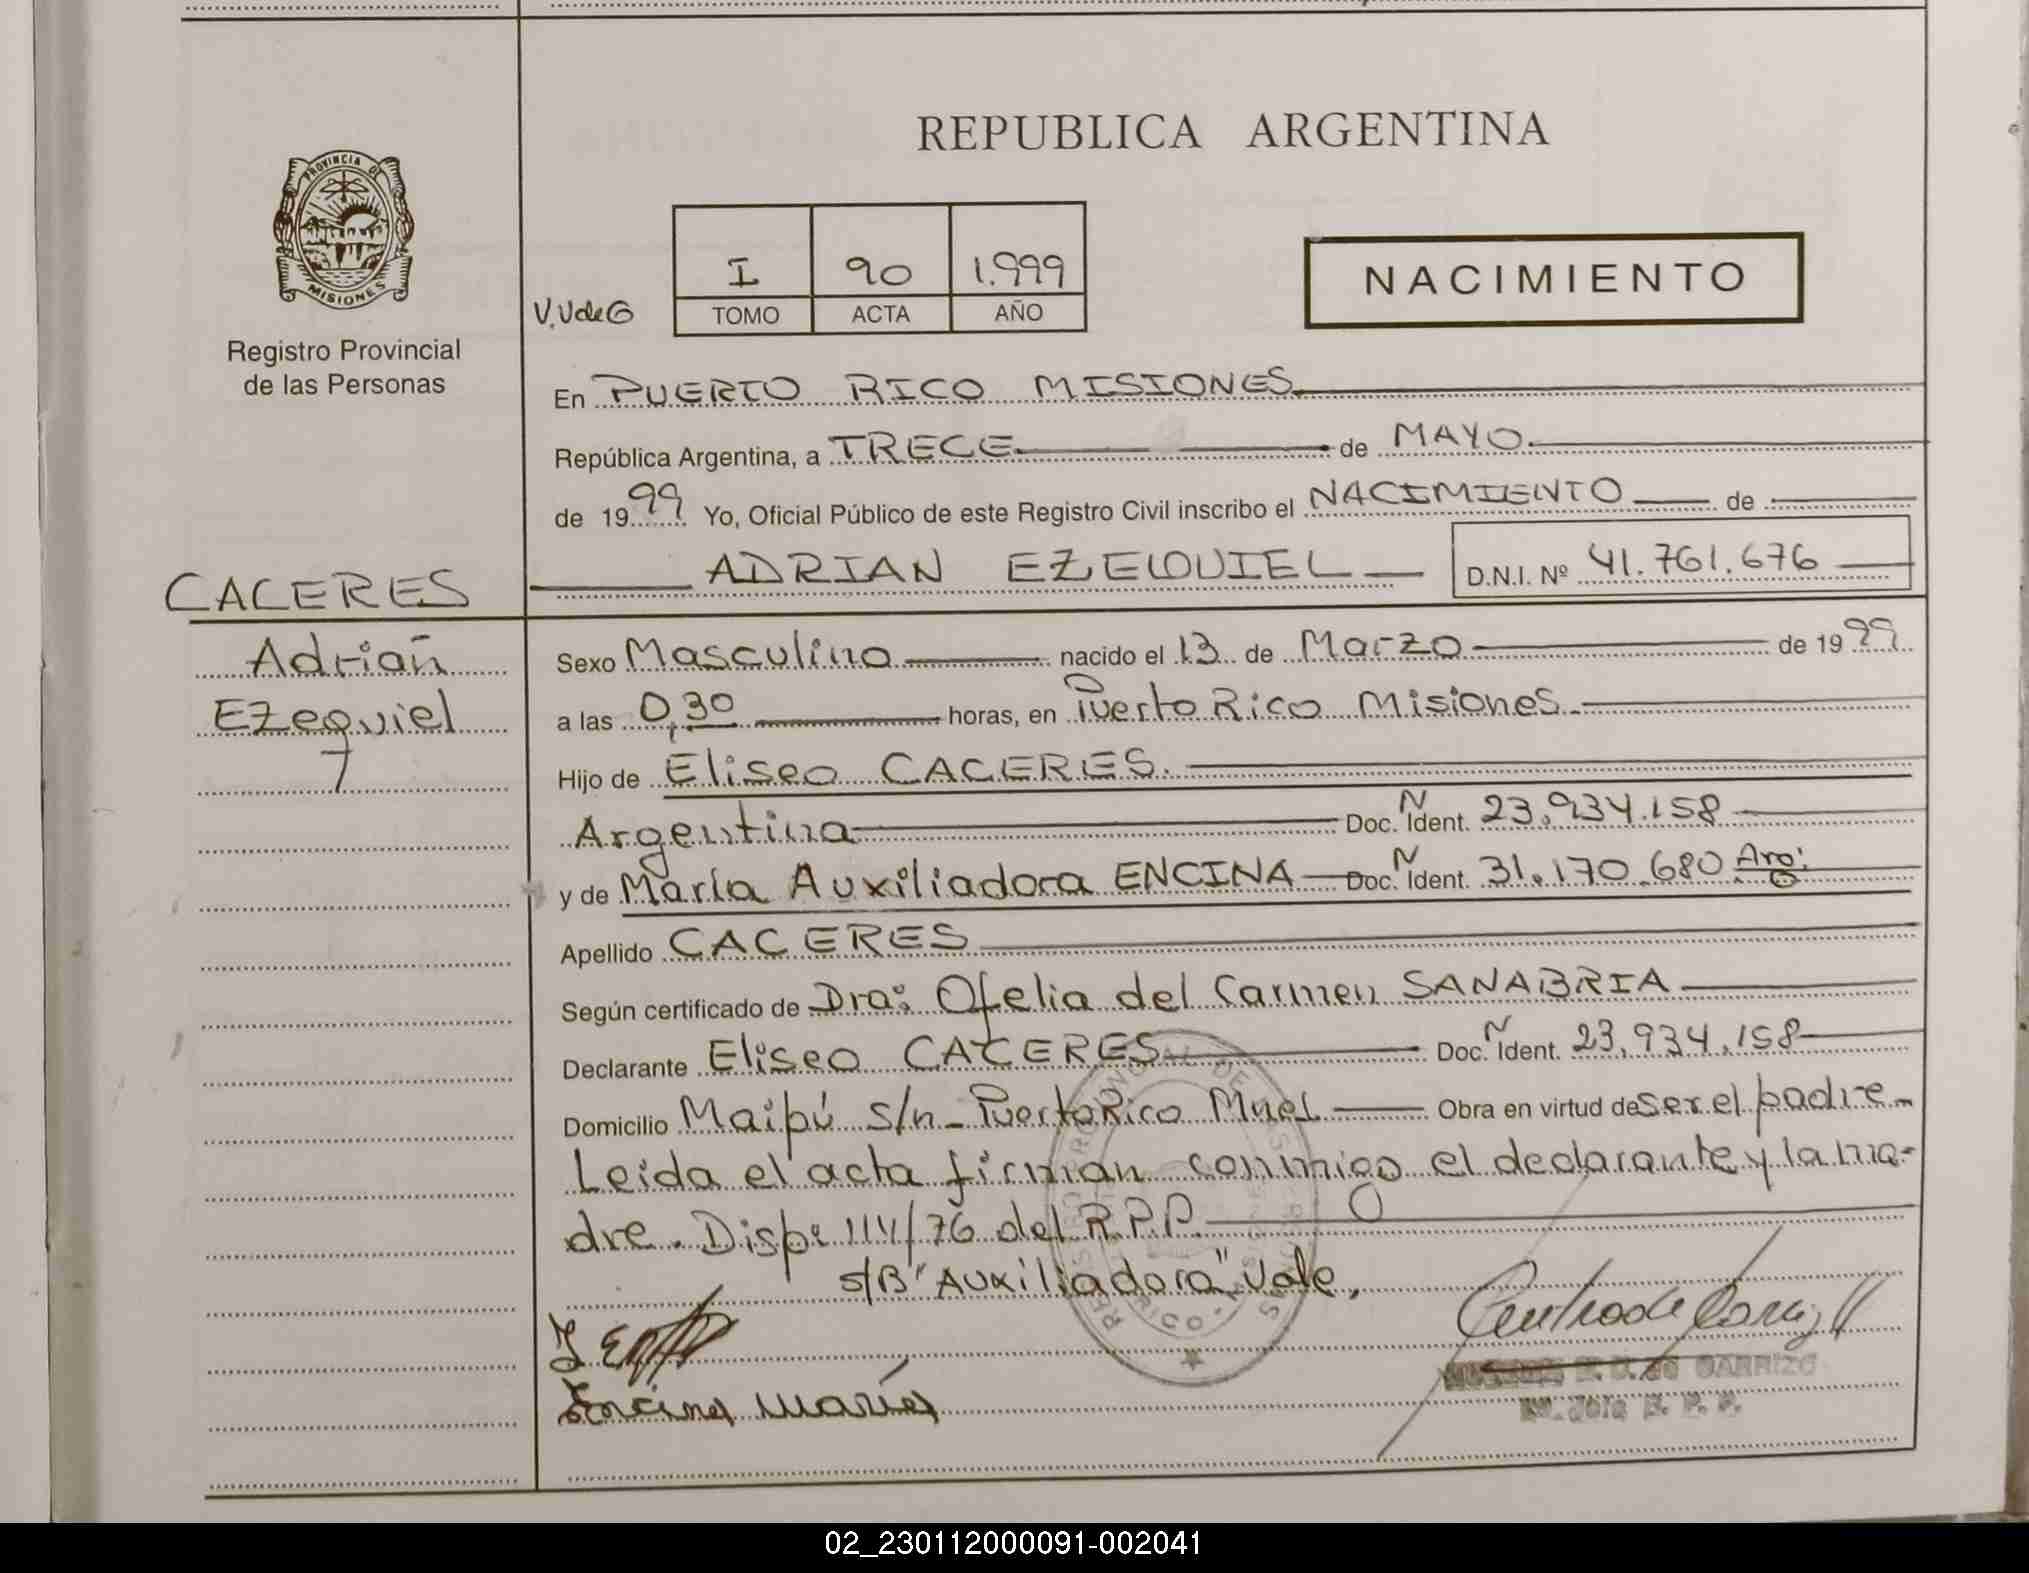 REPUBLICA ARGENTINA
PROVINCIA DE
MISIONES
Registro Provincial
de las Personas
V.V de G
I 90 1.999
TOMO ACTA AÑO
NACIMIENTO
En PUERTO RICO MISIONES
República Argentina, a TRECE de MAYO
de 1999 Yo, Oficial Público de este Registro Civil inscribo el NACIMIENTO de
ADRIAN EZEQUIEL D.N.I. Nº 41.761.676
CACERES
Adrián
Ezequiel
Sexo Masculino nacido el 13 de Marzo de 1999
a las 0,30 horas, en Puerto Rico Misiones
Hijo de Eliseo CACERES.
Argentina Doc. Ñ Ident. 23.934.158
y de María Auxiliadora ENCINA Doc. Ñ Ident. 31.170.680 Arg:
Apellido CACERES
Según certificado de Dra: Ofelia del Carmen SANABRIA
Declarante Eliseo CACERES Doc. Ñ Ident. 23.934.158
Domicilio Maipú s/n - Puerto Rico Mnes Obra en virtud de ser el padre
Leida el acta firman conmigo el declarante y la ma-
dre. Disp: 114/76 del R.P.P.
s/B "Auxiliadora" Vale,
Encina María
DE CARRIZO
R. P. P.
02_230112000091-002041